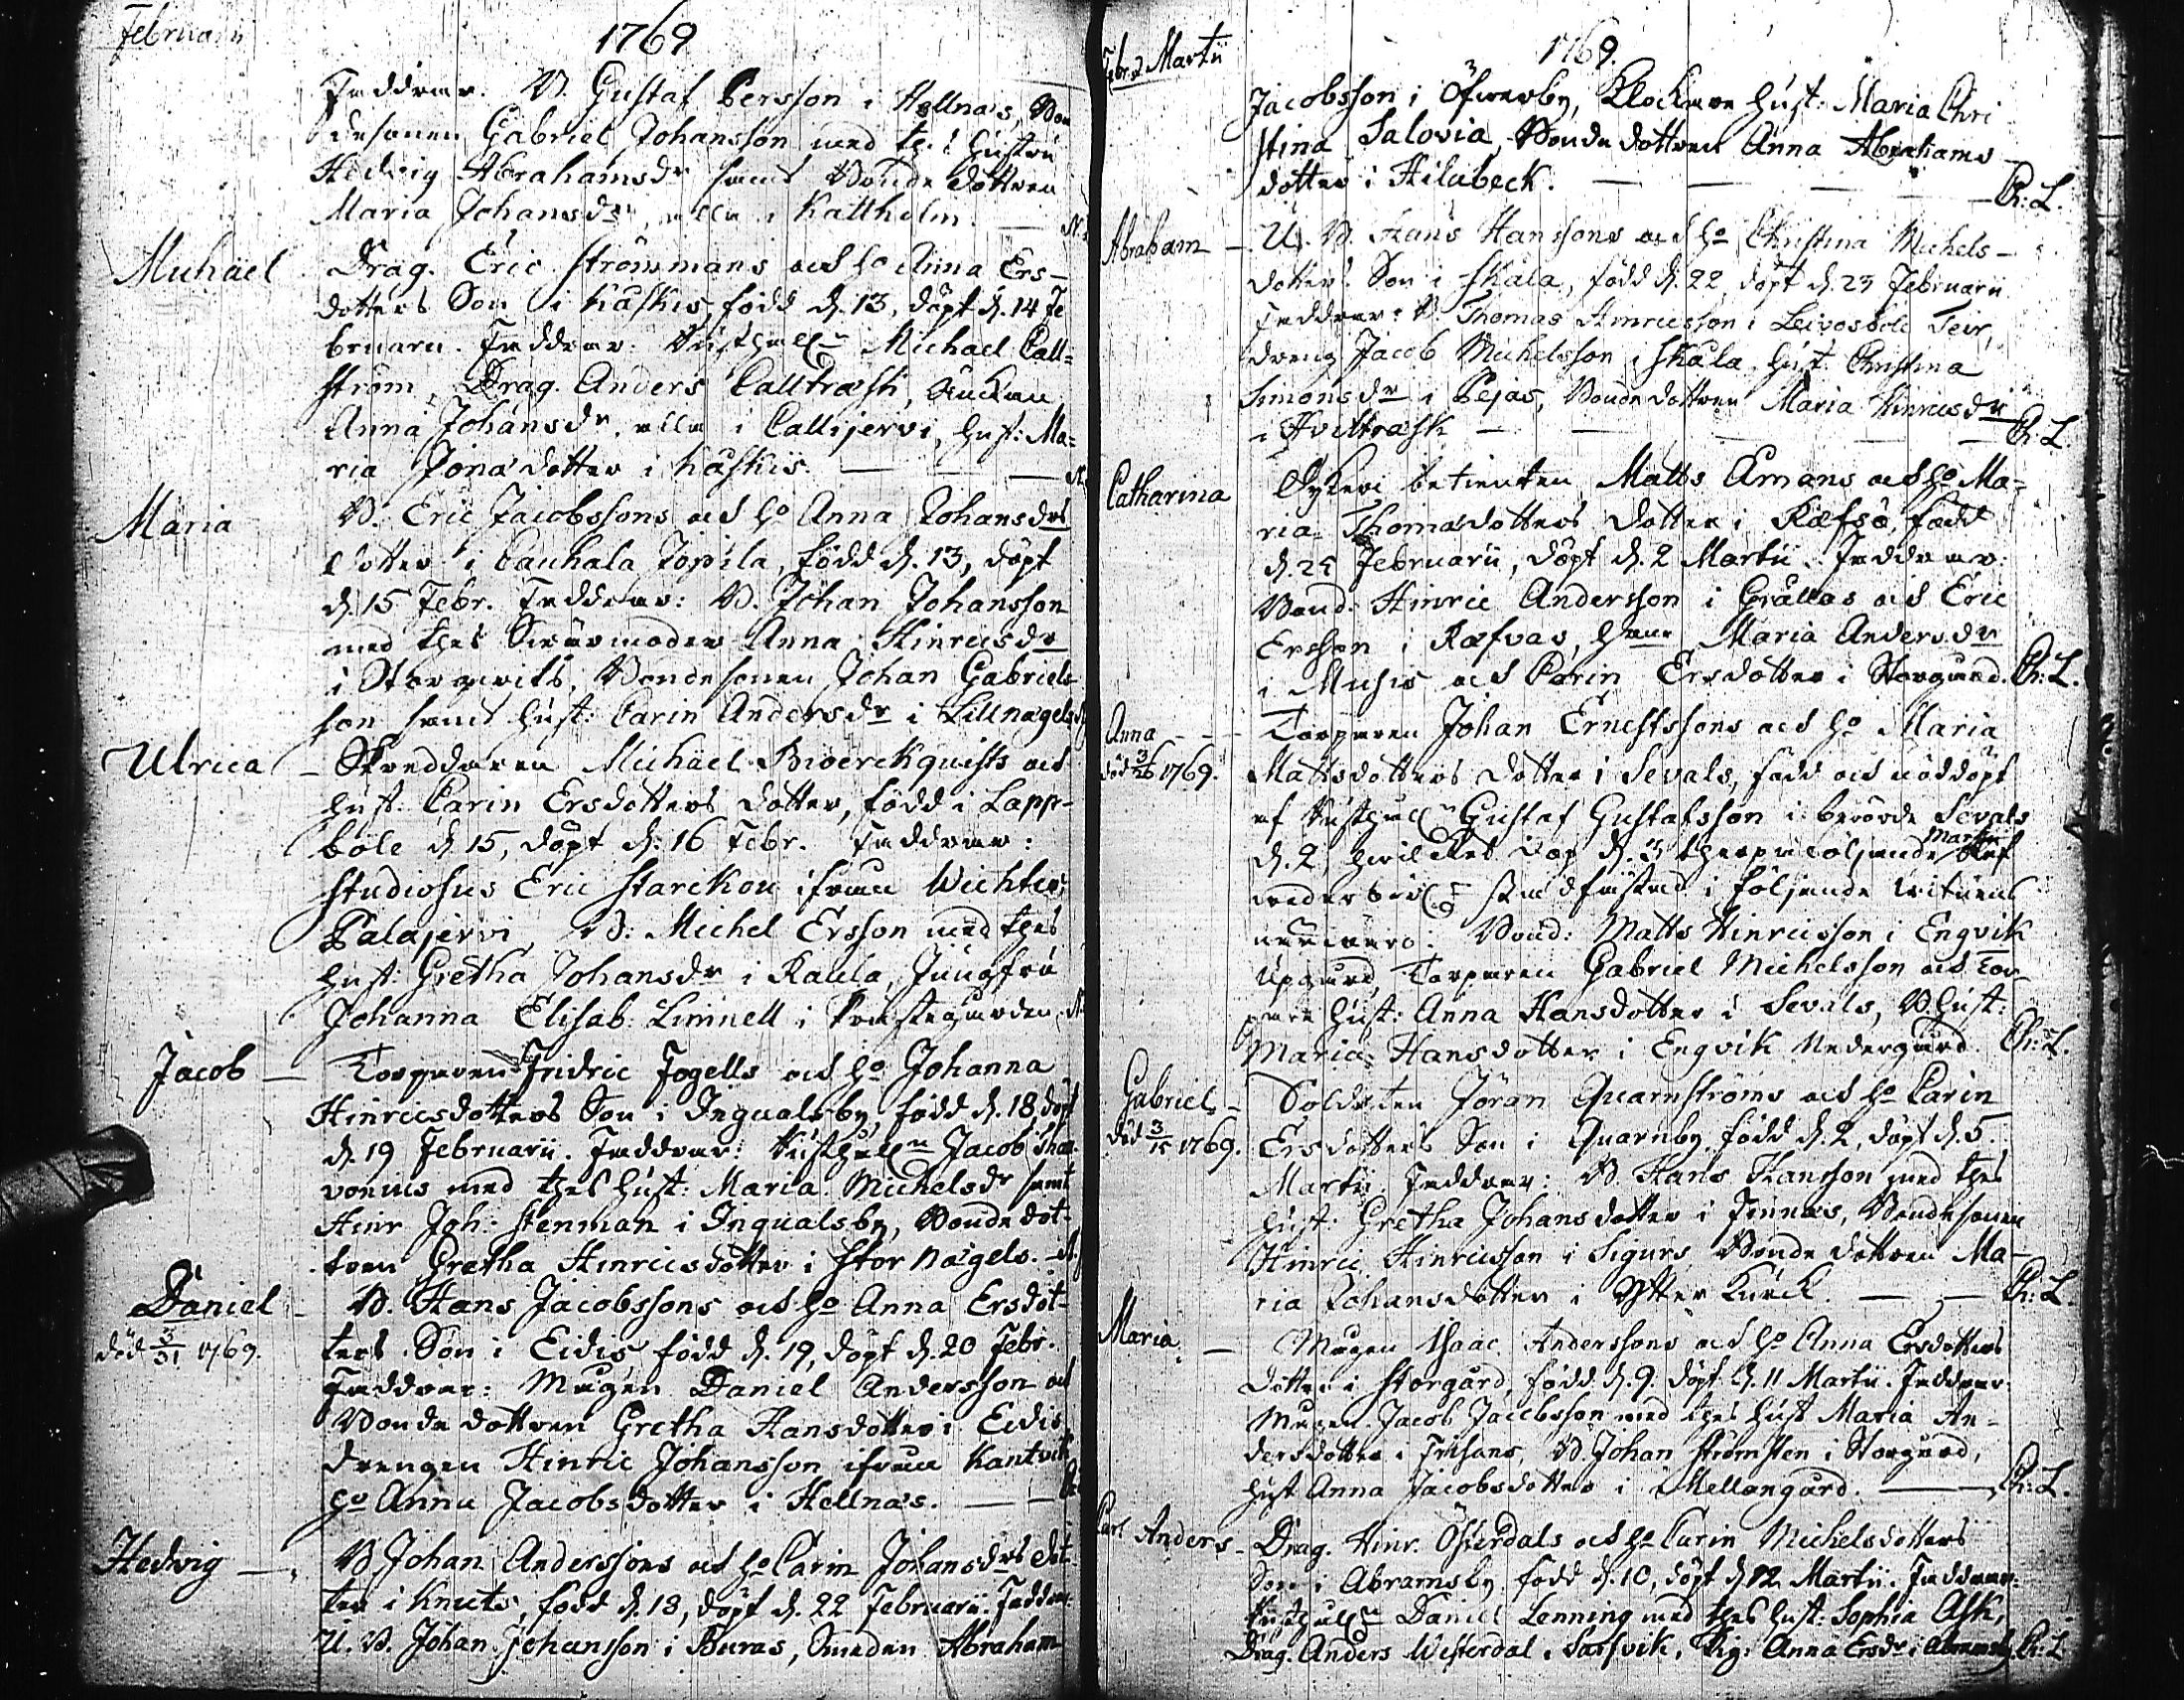 Februarii
1769
Faddrar. B. Gustaf Persson i Hellnäs, Bon
desonen Gabriel Johansson med th. hustru
Hedvig Abrahamsdr samt Bonde dottren
Maria Johansdr, alla i Kattholm.
Michäel
Drag. Eric Strömmans och ho Anna Ers-
dotters Son i Kaskis, född d. 13, döpt d. 14 Fe
bruarii. Faddrar: Michael Call-
ström, Drag. Anders Calltrask, Änckan
Anna Johansdr, alla i Callijervi, hust: Ma-
ria Jonædotter i Kaskis.
Maria
B. Eric Jacobssons och ho Anna Johansdrs
dotter i Cauhala Jopila, född d. 13, döpt
d. 15 Febr. Faddrar: B. Johan Johansson
med thes Swärmoder Anna Hinricsdr
i Storgerits, Bondesonen Johan Gabriels-
son samt hust: Carin Andersdr i Lillnägels
Ulrica
Skreddaren Michäel Bioerckquists och
hust: Carin Ersdotters dotter, född i Lapp-
böle d. 15, döpt d. 16 Febr. Faddrar:
Studiosus Eric Starckou ifrån Wichtis,
Palajervi B: Michel Ersson med thes
hust: Gretha Johansdr i Raula, Jungfru
Johanna Elisab: Limnell i Prästegården.
Jacob
Torparen Fridric Fogells och ho Johanna
Hinricsdotters Son i Ingvalsby, född d. 18, döpt
d. 19 Februarii. Faddrar: Jacob
med thes hust: Maria Michelsdr samt
Hinr Joh: Stenman i Ingvalsby, Bonde dot-
tren Gretha Hinricsdotter i Stor Nägels.
Daniel
död 3/31 1769.
B. Hans Jacobssons och ho Anna Ersdot-
ters Son i Eidis född d. 19, döpt d. 20 Febr.
Faddrar: Mågen Daniel Andersson och
Bonde dottren Gretha Hansdotter i Eidis
drengen Hinric Johansson ifrån Kantvik
ho Anna Jacobsdotter i Hellnäs.
Hedvig
B. Johan Anderssons och ho Carin Johansdrs dot-
ter i Knuts, född d. 18, döpt d. 22 Februarii. Faddrar
U. B. Johan Johansson i Buras, Smeden Abraham
Febr. & Martii
1769.
Jacobsson i Öfwerby, Klockare hust: Maria Chri
stina Salovia, Bonde dottren Anna Abrahams-
dotter i Hilabeck. Ch: L.
Abraham
U. B. Hans Hanssons och ho Christina Michels-
dotters Son i Skala, född d. 22, döpt d. 23 Februarii
Faddrar: B. Thomas Hinricsson i Leivosböle Teir,
dreng Jacob Michelsson i Skala, hust: Christina
Simonsdr i Pejas, Bonde dottren Maria Hinricsdr
i Hvittrask Ch: L.
Catharina
betienten Matts Emans och ho Ma-
ria Thomædotters dotter i Ræfsö, född
d. 25 Februarii, döpt d. 2 Martii. Faddrar:
Bond: Hinric Andersson i Grällas och Eric
Ersson i Ræfvas, Maria Andersdr
i Musis och Carin Ersdotter i Storgård. Ch: L.
Anna
död 3/26 1769.
Torparen Johan Ernestssons och ho Maria
Mattsdotters dotter i Sevals, född och nöddöpt
af Gustaf Gustafsson i berörde Sevals
d. 2, hvilcket dop d. 3 therpå följande Martii
i följande
Bond: Matts Hinricsson i Engvik
Upgård, Torparen Gabriel Michelsson och Tor-
pare hust: Anna Hansdotter i Sevals, B. hust:
Maria Hansdotter i Engvik Nedergård. Ch: L.
Gabriel
död 3/15 1769.
Soldaten Jöran Quarnströms och ho Carin
Ersdotters Son i Quarnby, född d. 2, döpt d. 5.
Martii. Faddrar: B. Hans Hansson med thes
hust: Gretha Johansdotter i Finnas, Bondesonen
Hinric Hinricsson i Sigurs Bonde dottren Ma-
ria Johansdotter i Ytter Kurck. Ch: L.
Maria
Mågen Isaac Anderssons och ho Anna Ersdotters
dotter i Storgård, född d. 9. döpt d. 11 Martii. Faddrar
Mågen Jacob Jacobsson med thes hust Maria An-
dersdotter i Frisans, B. Johan Strömsten i Storgård,
hust Anna Jacobsdotter i Mellangård. Ch: L.
Carl Anders
Drag. Hinr. Österdals och ho Carin Michelsdotters
Son i Abramsby, född d. 10, döpt d. 12 Martii. Faddrar:
Daniel Lenning med thes hust: Sophia Ask,
Drag. Anders Westerdal i Sarfvik, Pig: Anna Ersdr i Abramsby. Ch: L.